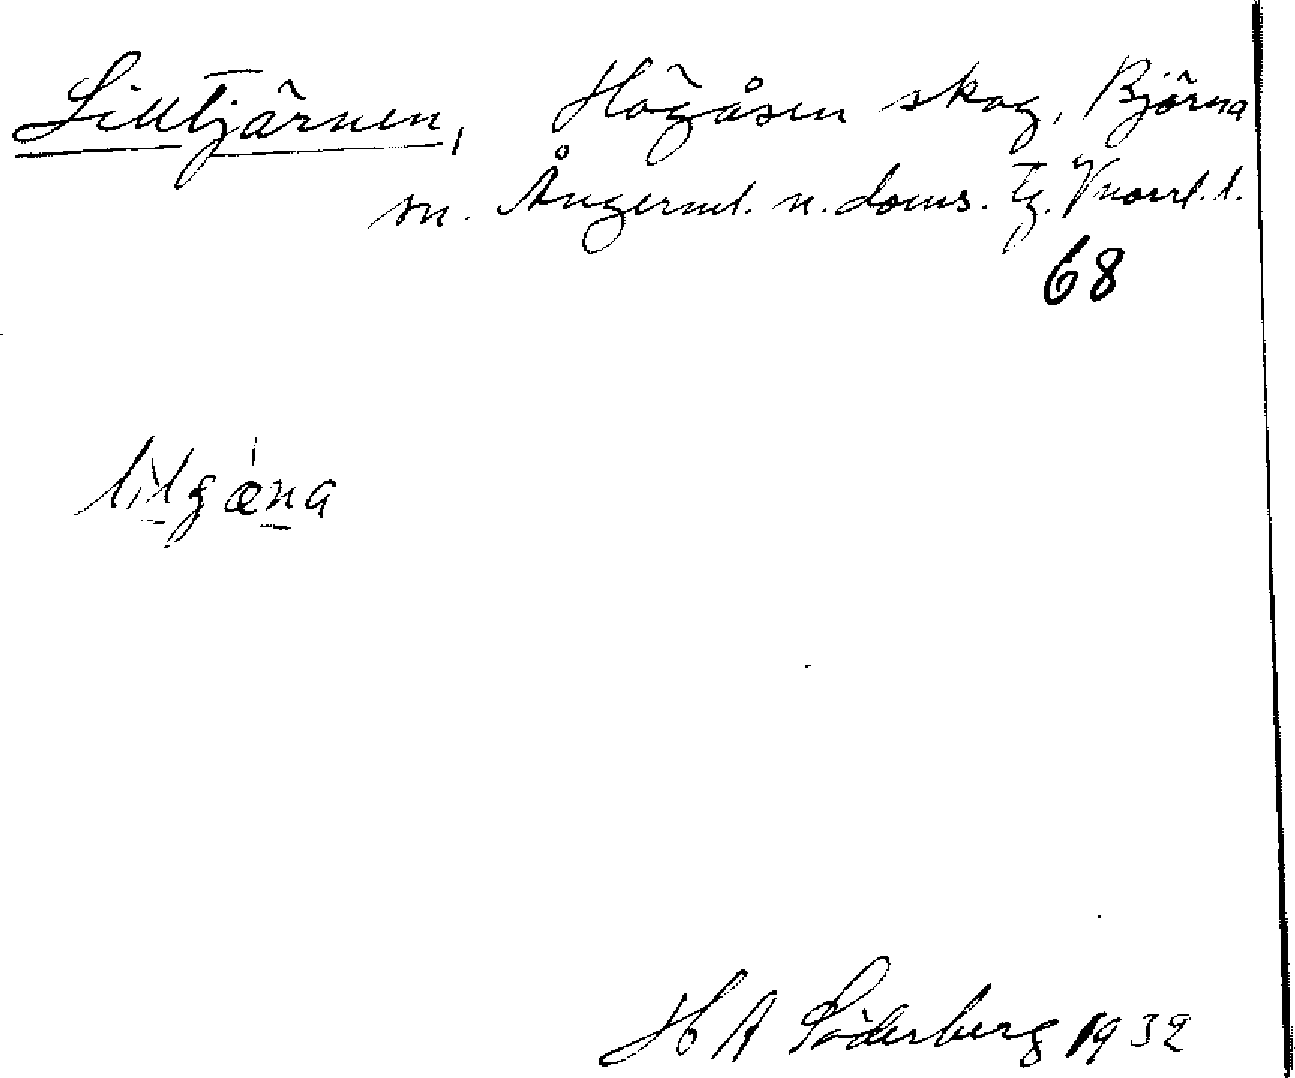 Lilltjärnen, Högåsen skog, Björna
sn. Ångerml. n. doms. tg. Vnorrl. l.
68
H A Söderberg 1932